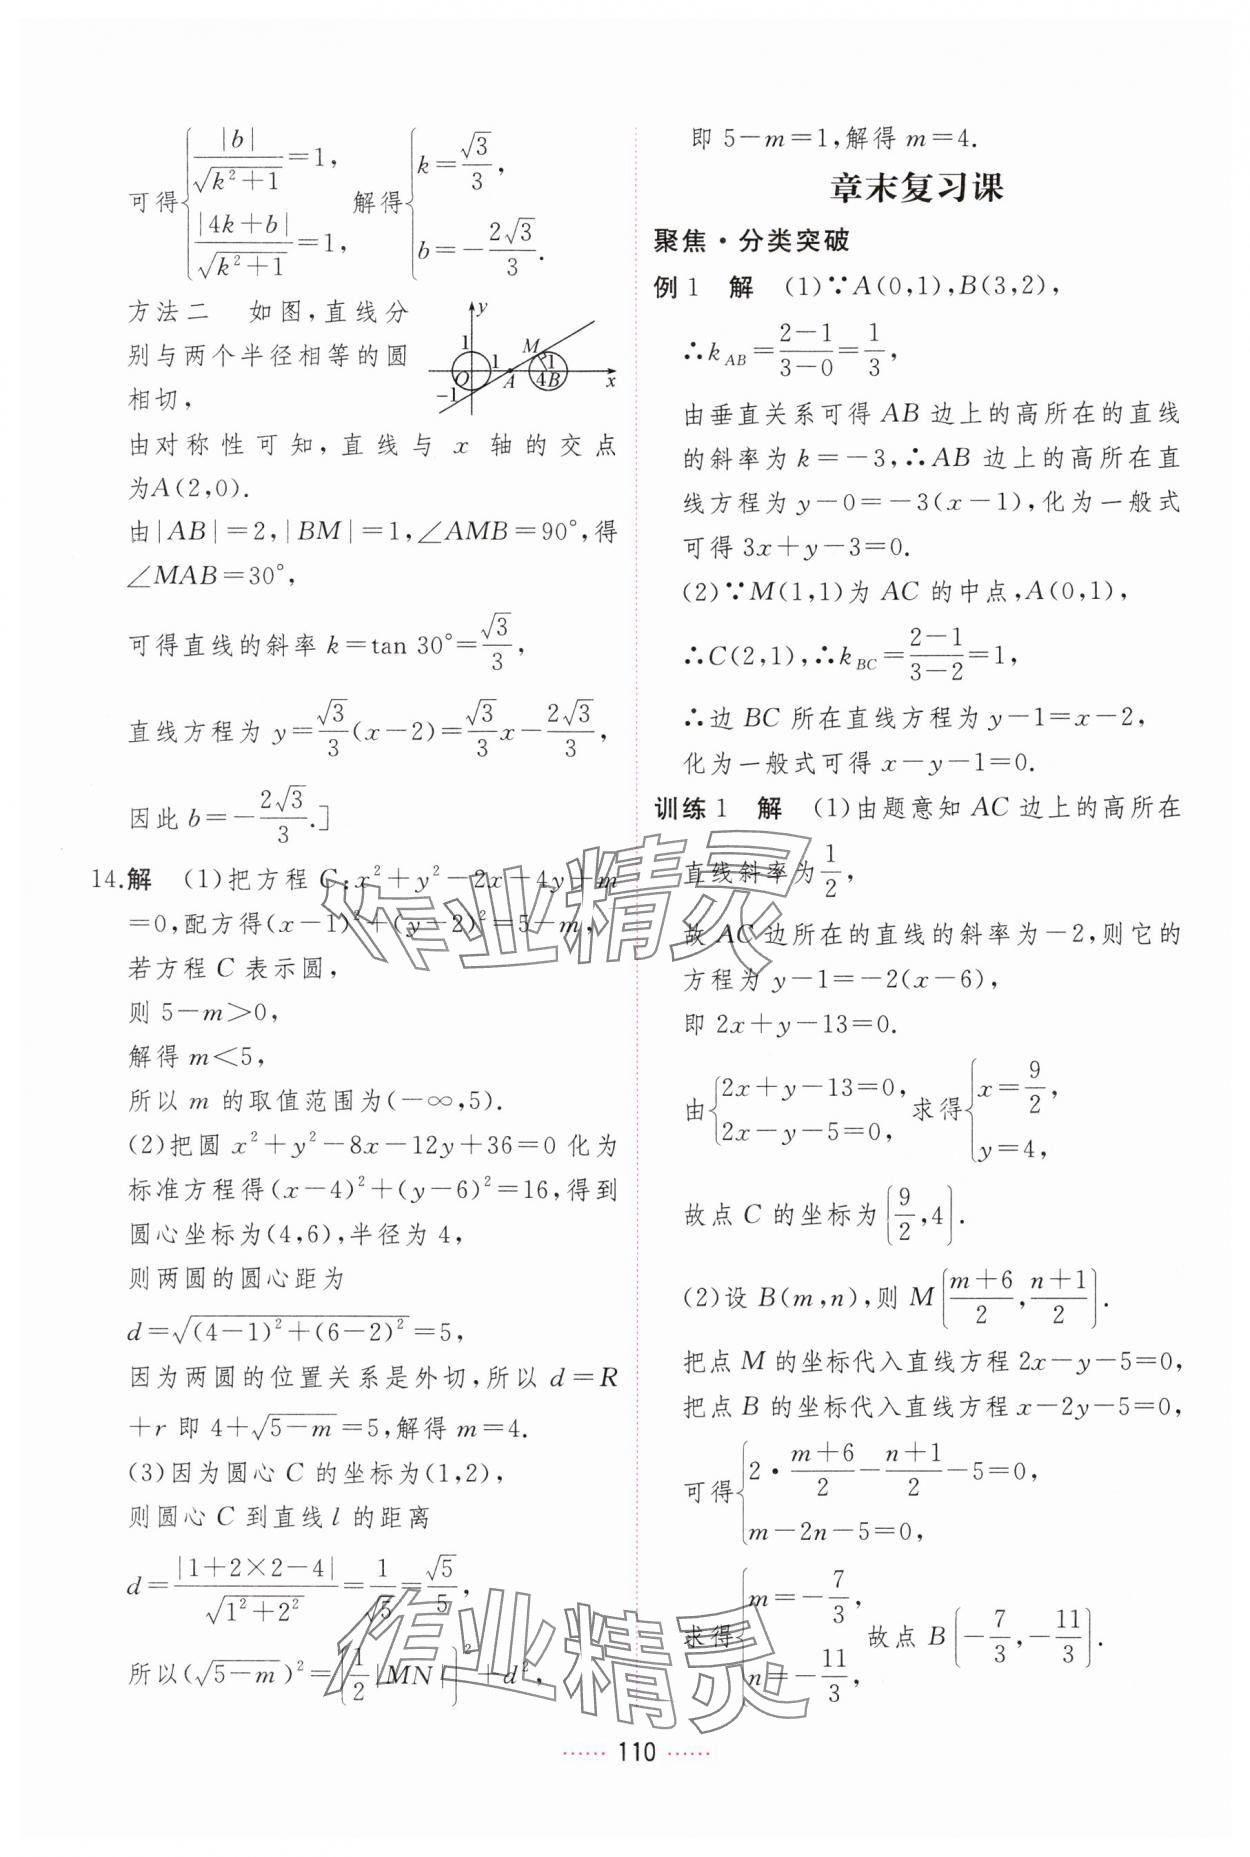 可得{|b|/√(k²+1)=1, |4k+b|/√(k²+1)=1, 解得{k=√3/3, b=-2√3/3.
方法二 如图,直线分
别与两个半径相等的圆
相切,
y
1
M
1
1
O
A
4B
x
-1
由对称性可知,直线与 x 轴的交点
为A(2,0).
由|AB|=2,|BM|=1,∠AMB=90°,得
∠MAB=30°,
可得直线的斜率 k=tan 30°=√3/3,
直线方程为 y=√3/3(x-2)=√3/3x-2√3/3,
因此 b=-2√3/3.]
14.解 (1)把方程 C:x²+y²-2x-4y+m
=0,配方得(x-1)²+(y-2)²=5-m,
若方程 C 表示圆,
则 5-m>0,
解得 m<5,
所以 m 的取值范围为(-∞,5).
(2)把圆 x²+y²-8x-12y+36=0 化为
标准方程得(x-4)²+(y-6)²=16,得到
圆心坐标为(4,6),半径为 4,
则两圆的圆心距为
d=√((4-1)²+(6-2)²)=5,
因为两圆的位置关系是外切,所以 d=R
+r 即 4+√(5-m)=5,解得 m=4.
(3)因为圆心 C 的坐标为(1,2),
则圆心 C 到直线 l 的距离
d=|1+2×2-4|/√(1²+2²)=1/√5=√5/5,
所以(√(5-m))²=(1/2|MN|)²+d²,
即 5-m=1,解得 m=4.
章末复习课
聚焦·分类突破
例1 解 (1)∵A(0,1),B(3,2),
∴k_AB=(2-1)/(3-0)=1/3,
由垂直关系可得 AB 边上的高所在的直线
的斜率为 k=-3,∴AB 边上的高所在直
线方程为 y-0=-3(x-1),化为一般式
可得 3x+y-3=0.
(2)∵M(1,1)为 AC 的中点,A(0,1),
∴C(2,1),∴k_BC=(2-1)/(3-2)=1,
∴边 BC 所在直线方程为 y-1=x-2,
化为一般式可得 x-y-1=0.
训练1 解 (1)由题意知 AC 边上的高所在
直线斜率为1/2,
故 AC 边所在的直线的斜率为-2,则它的
方程为 y-1=-2(x-6),
即 2x+y-13=0.
由{2x+y-13=0, 2x-y-5=0, 求得{x=9/2, y=4,
故点 C 的坐标为(9/2,4).
(2)设 B(m,n),则 M((m+6)/2,(n+1)/2).
把点 M 的坐标代入直线方程 2x-y-5=0,
把点 B 的坐标代入直线方程 x-2y-5=0,
可得{2·(m+6)/2-(n+1)/2-5=0, m-2n-5=0,
求得{m=-7/3, n=-11/3, 故点 B(-7/3,-11/3).
作业精灵
作业精灵
110